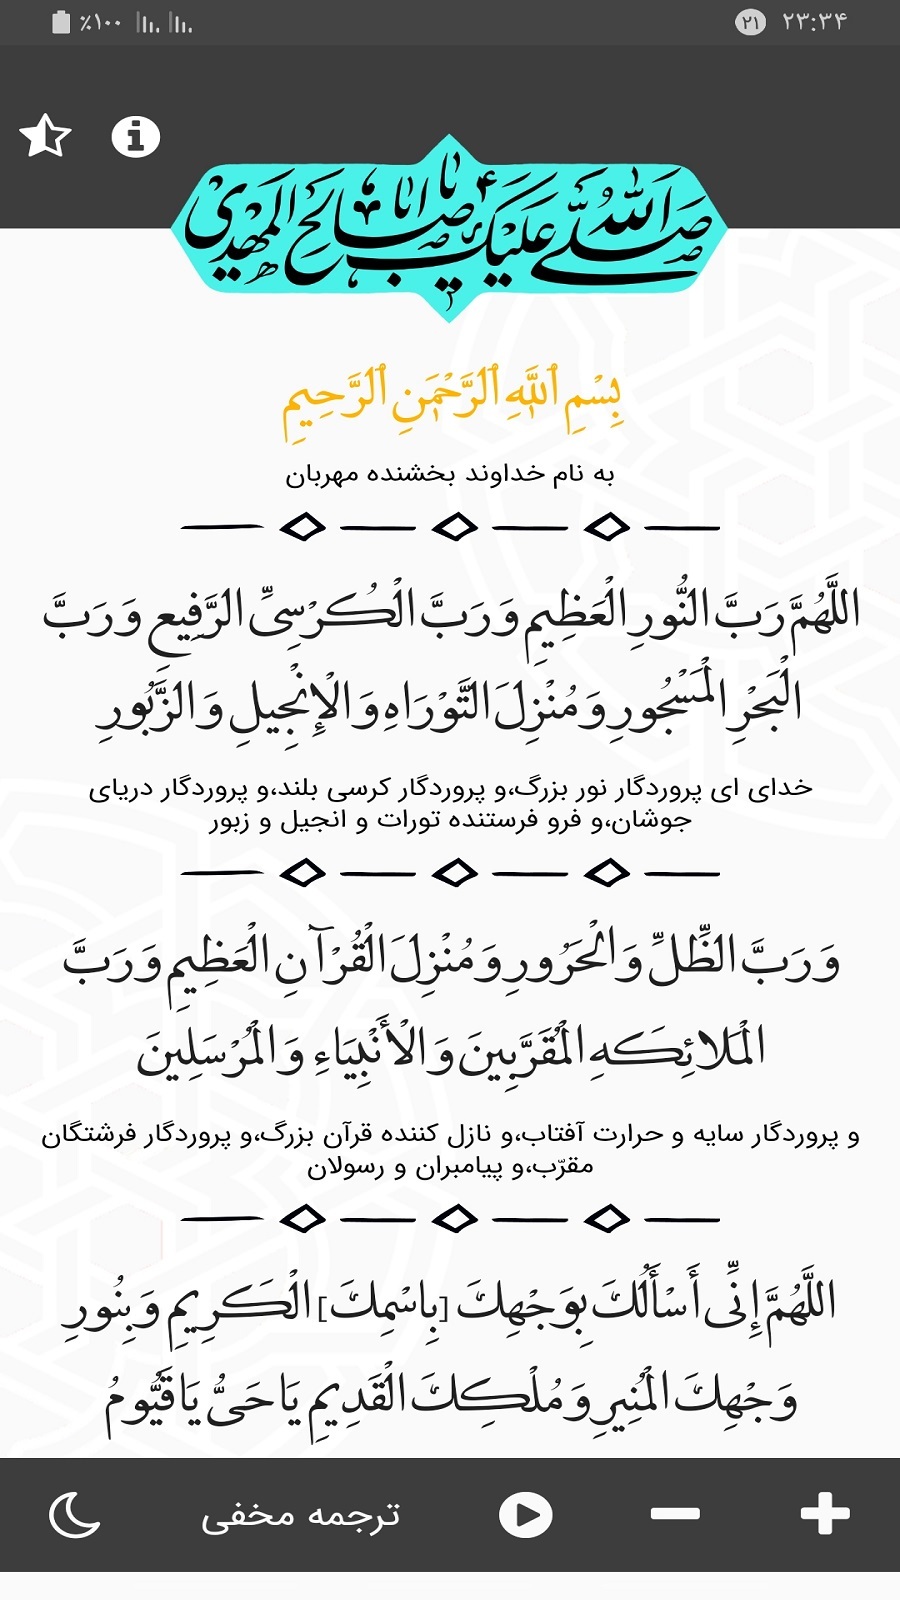 ٪۱۰۰ ۲۱ ۲۳:۳۴
صلی الله علیک یا اباصالح المهدی
بِسْمِ ٱللَّهِ ٱلرَّحْمَٰنِ ٱلرَّحِيمِ
به نام خداوند بخشنده مهربان
اللَّهُمَّ رَبَّ النُّورِ الْعَظِيمِ وَ رَبَّ الْكُرْسِيِّ الرَّفِيعِ وَ رَبَّ
الْبَحْرِ الْمَسْجُورِ وَ مُنْزِلَ التَّوْرَاهِ وَ الْإِنْجِيلِ وَ الزَّبُورِ
خدای ای پروردگار نور بزرگ،و پروردگار کرسی بلند،و پروردگار دریای
جوشان،و فرو فرستنده تورات و انجیل و زبور
وَ رَبَّ الظِّلِّ وَ الْحَرُورِ وَ مُنْزِلَ الْقُرْآنِ الْعَظِيمِ وَ رَبَّ
الْمَلائِكَهِ الْمُقَرَّبِينَ وَ الْأَنْبِيَاءِ وَ الْمُرْسَلِينَ
و پروردگار سایه و حرارت آفتاب،و نازل کننده قرآن بزرگ،و پروردگار فرشتگان
مقرّب،و پیامبران و رسولان
اللَّهُمَّ إِنِّي أَسْأَلُكَ بِوَجْهِكَ [بِاسْمِكَ] الْكَرِيمِ وَ بِنُورِ
وَجْهِكَ الْمُنِيرِ وَ مُلْكِكَ الْقَدِيمِ يَا حَيُّ يَا قَيُّومُ
ترجمه مخفی